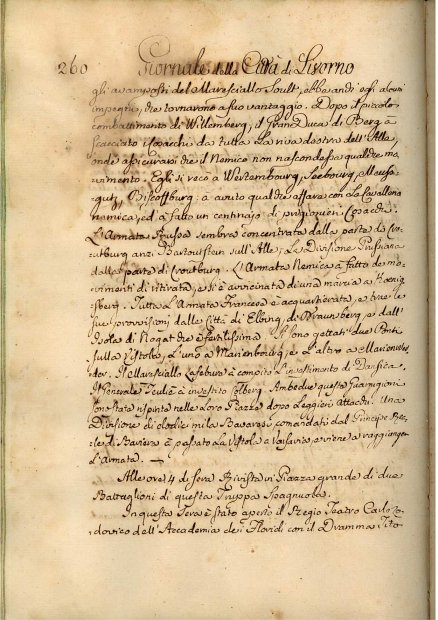 260 Giornale della Città di Livorno
gli avamposti del Maresciallo Soult, ebbe andi egli alcuni
impegni, che tornarono a suo vantaggio. Dopo il piccolo
combattimento di Willemberg, il Gran Duca di Berg à
scacciato i Cosacchi da tutta la riva destra dell'Alle,
onde assicurarsi che il Nemico non nascondesse qualche mo-
vimento. Egli si recò a Wartembourg, Seebourg, Meus-
guth, Bischoffburg; à avuto qualche affare con la Cavalleria
nemica, ed à fatto un centinajo di prigionieri Cosacchi.
L'Armata Russa sembra concentrata dalla parte di Creu-
tburg anzi Bartenstein sull'Alle; La Divisione Prussiana
dalla parte di Creutburg. L'Armata Nemica à fatto de mo-
vimenti di ritirata, e si è avvicinata di una marcia a Koenig-
sberg. Tutta l'Armata Francese è acquartierata, e tira le
sue provvisioni dalle Città di Elbing, di Braunsberg, e dall'
Isola di Nogat che è fertilissima. Si sono gettati due Ponti
sulla Vistola, l'uno a Marienbourg, e l'altro a Marienwer-
der. Il Maresciallo Lefebure à compito l'investimento di Danzica.
Il Generale Teuliè à investito Colberg. Ambedue queste Guarnigioni
sono state rispinte nelle loro Piazze dopo leggieri Attacchi. Una
Divisione di dodici mila Bavaresi, comandati dal Principe Rea-
le di Baviera à passato la Vistola a Varsavia, e viene a raggiunger
l'Armata. —
Alle ore 4 di sera Rivista in Piazza grande di due
Battaglioni di questa Truppa Spagnuola.
In questa sera è stato aperto il Regio Teatro Carlo Lo-
dovico dell'Accademia dei Floridi con il Dramma Tito